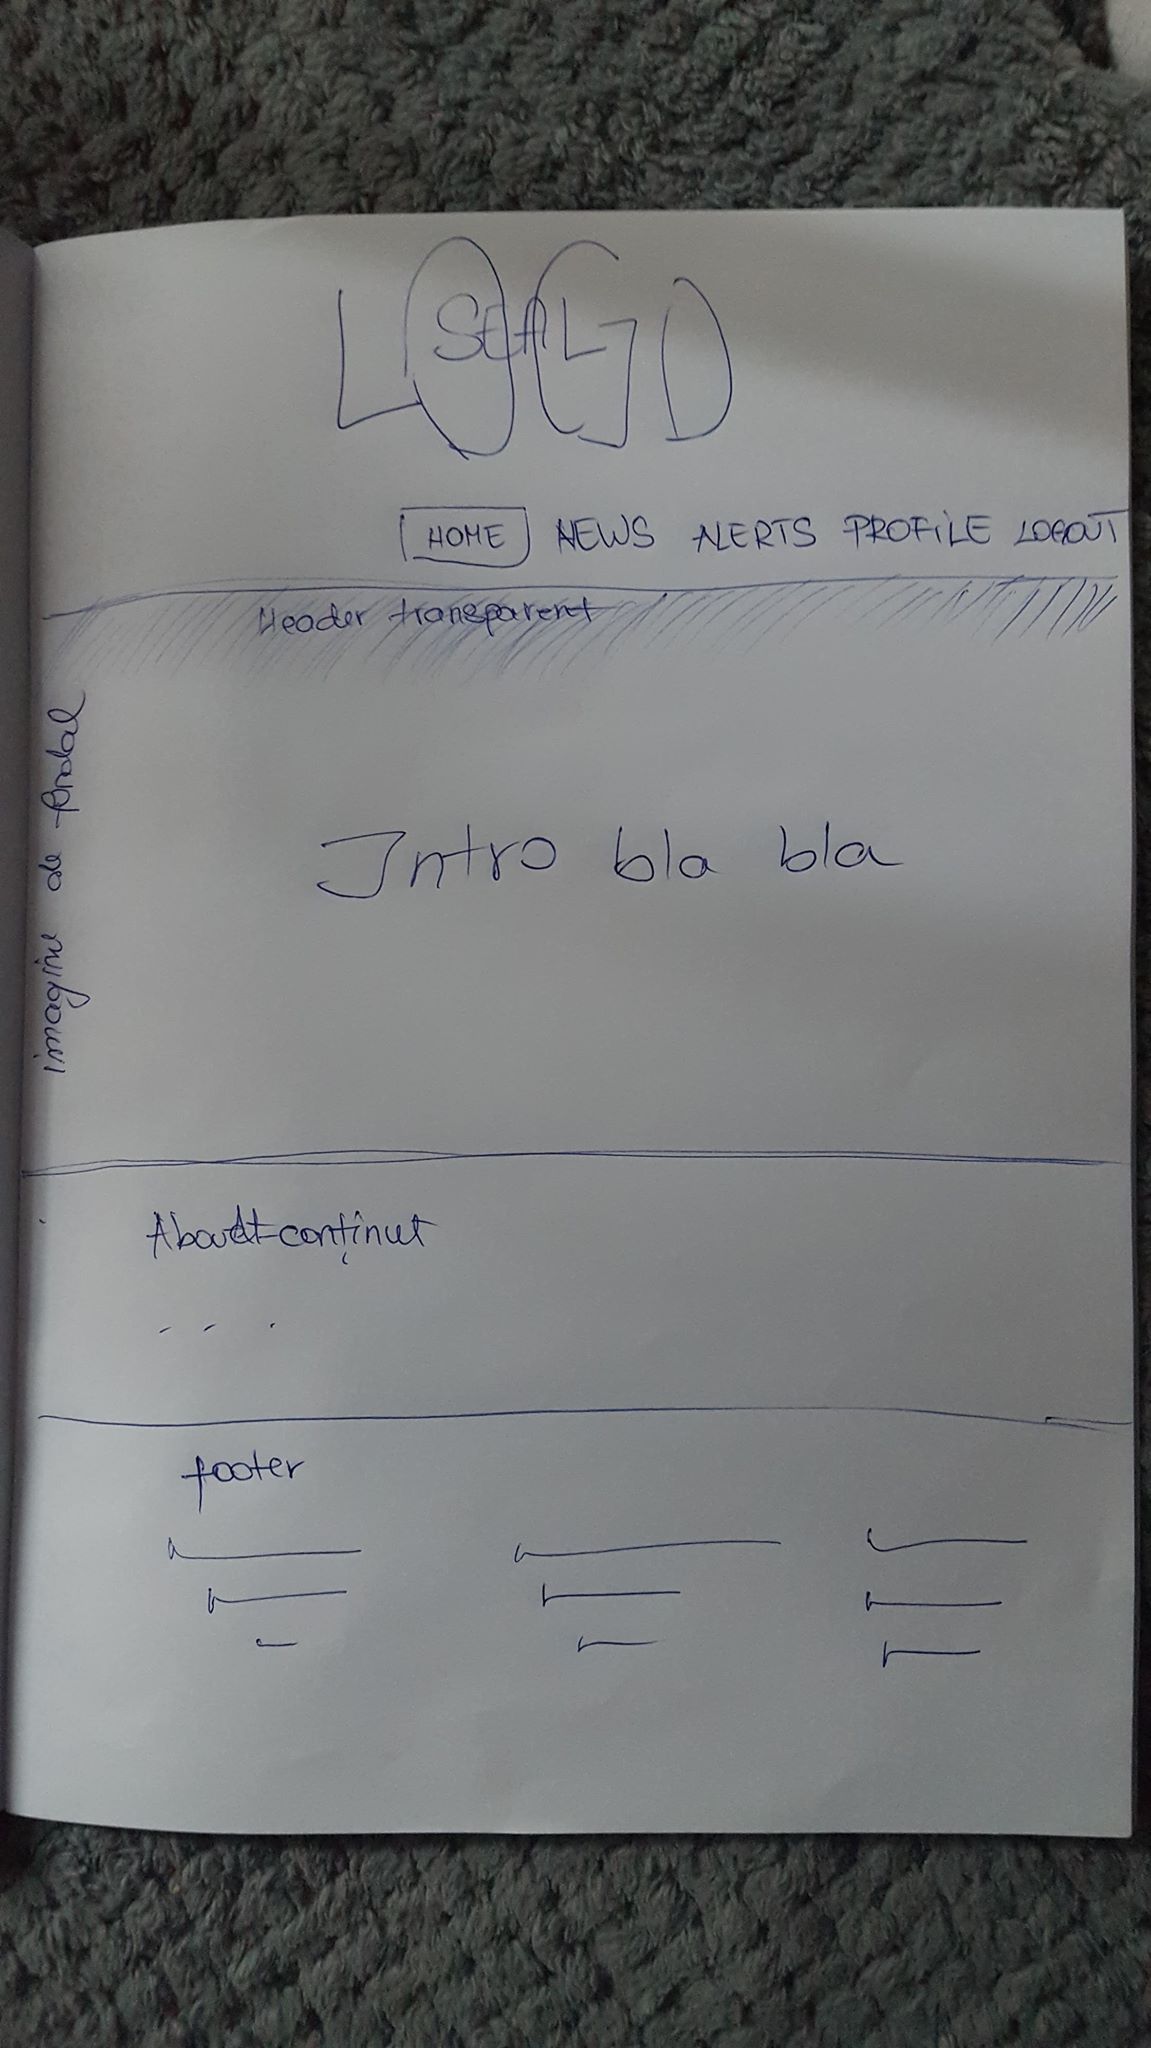 LOGO
SEAL
HOME NEWS ALERTS PROFILE LOGOUT
Header transparent
imagine de fundal
Intro bla bla
About conținut
. . .
footer